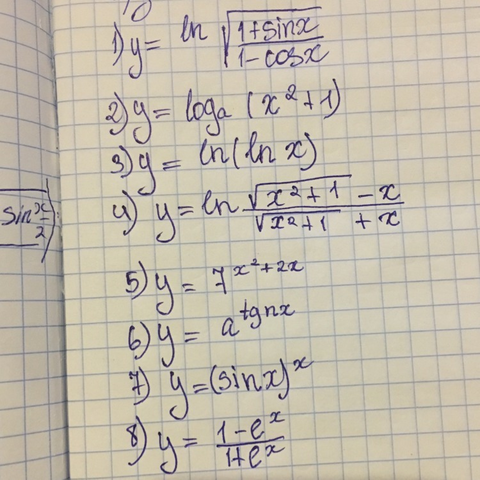 1) y = ln √((1+sinx)/(1-cosx))
2) y = logₐ (x²+1)
3) y = ln(ln x)
sin x/2)
4) y = ln (√(x²+1) - x)/(√(x²+1) + x)
5) y = 7^(x²+2x)
6) y = a^(tgnx)
7) y = (sinx)^x
8) y = (1-e^x)/(1+e^x)